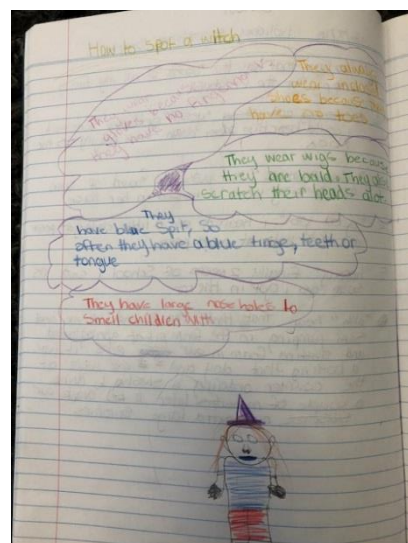 How to spot a witch
They wear
gloves because
they have no fing
They always
wear
shoes because
have no toes
They wear wigs because
they are bald. They also
scratch their heads alot
They
have blue spit, so
often they have a blue tinge, teeth or
tongue
They have large nose holes to
smell children with